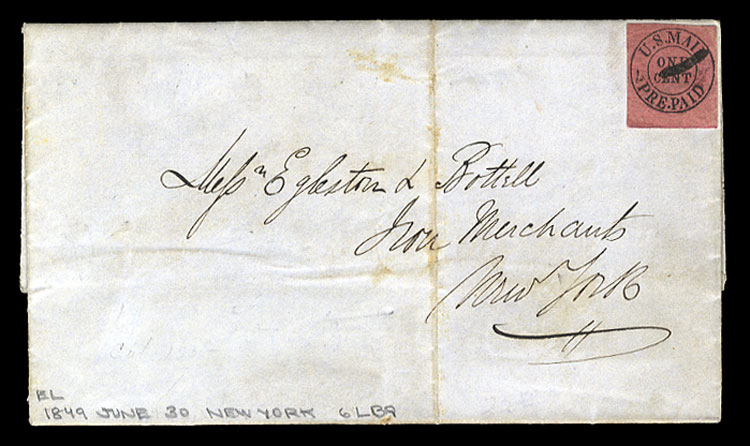 U.S.MAIL
ONE
CENT
PRE-PAID
Messrs Egleston & Battell
Iron Merchants
New York
EL
1849 JUNE 30 NEW YORK 6LB9